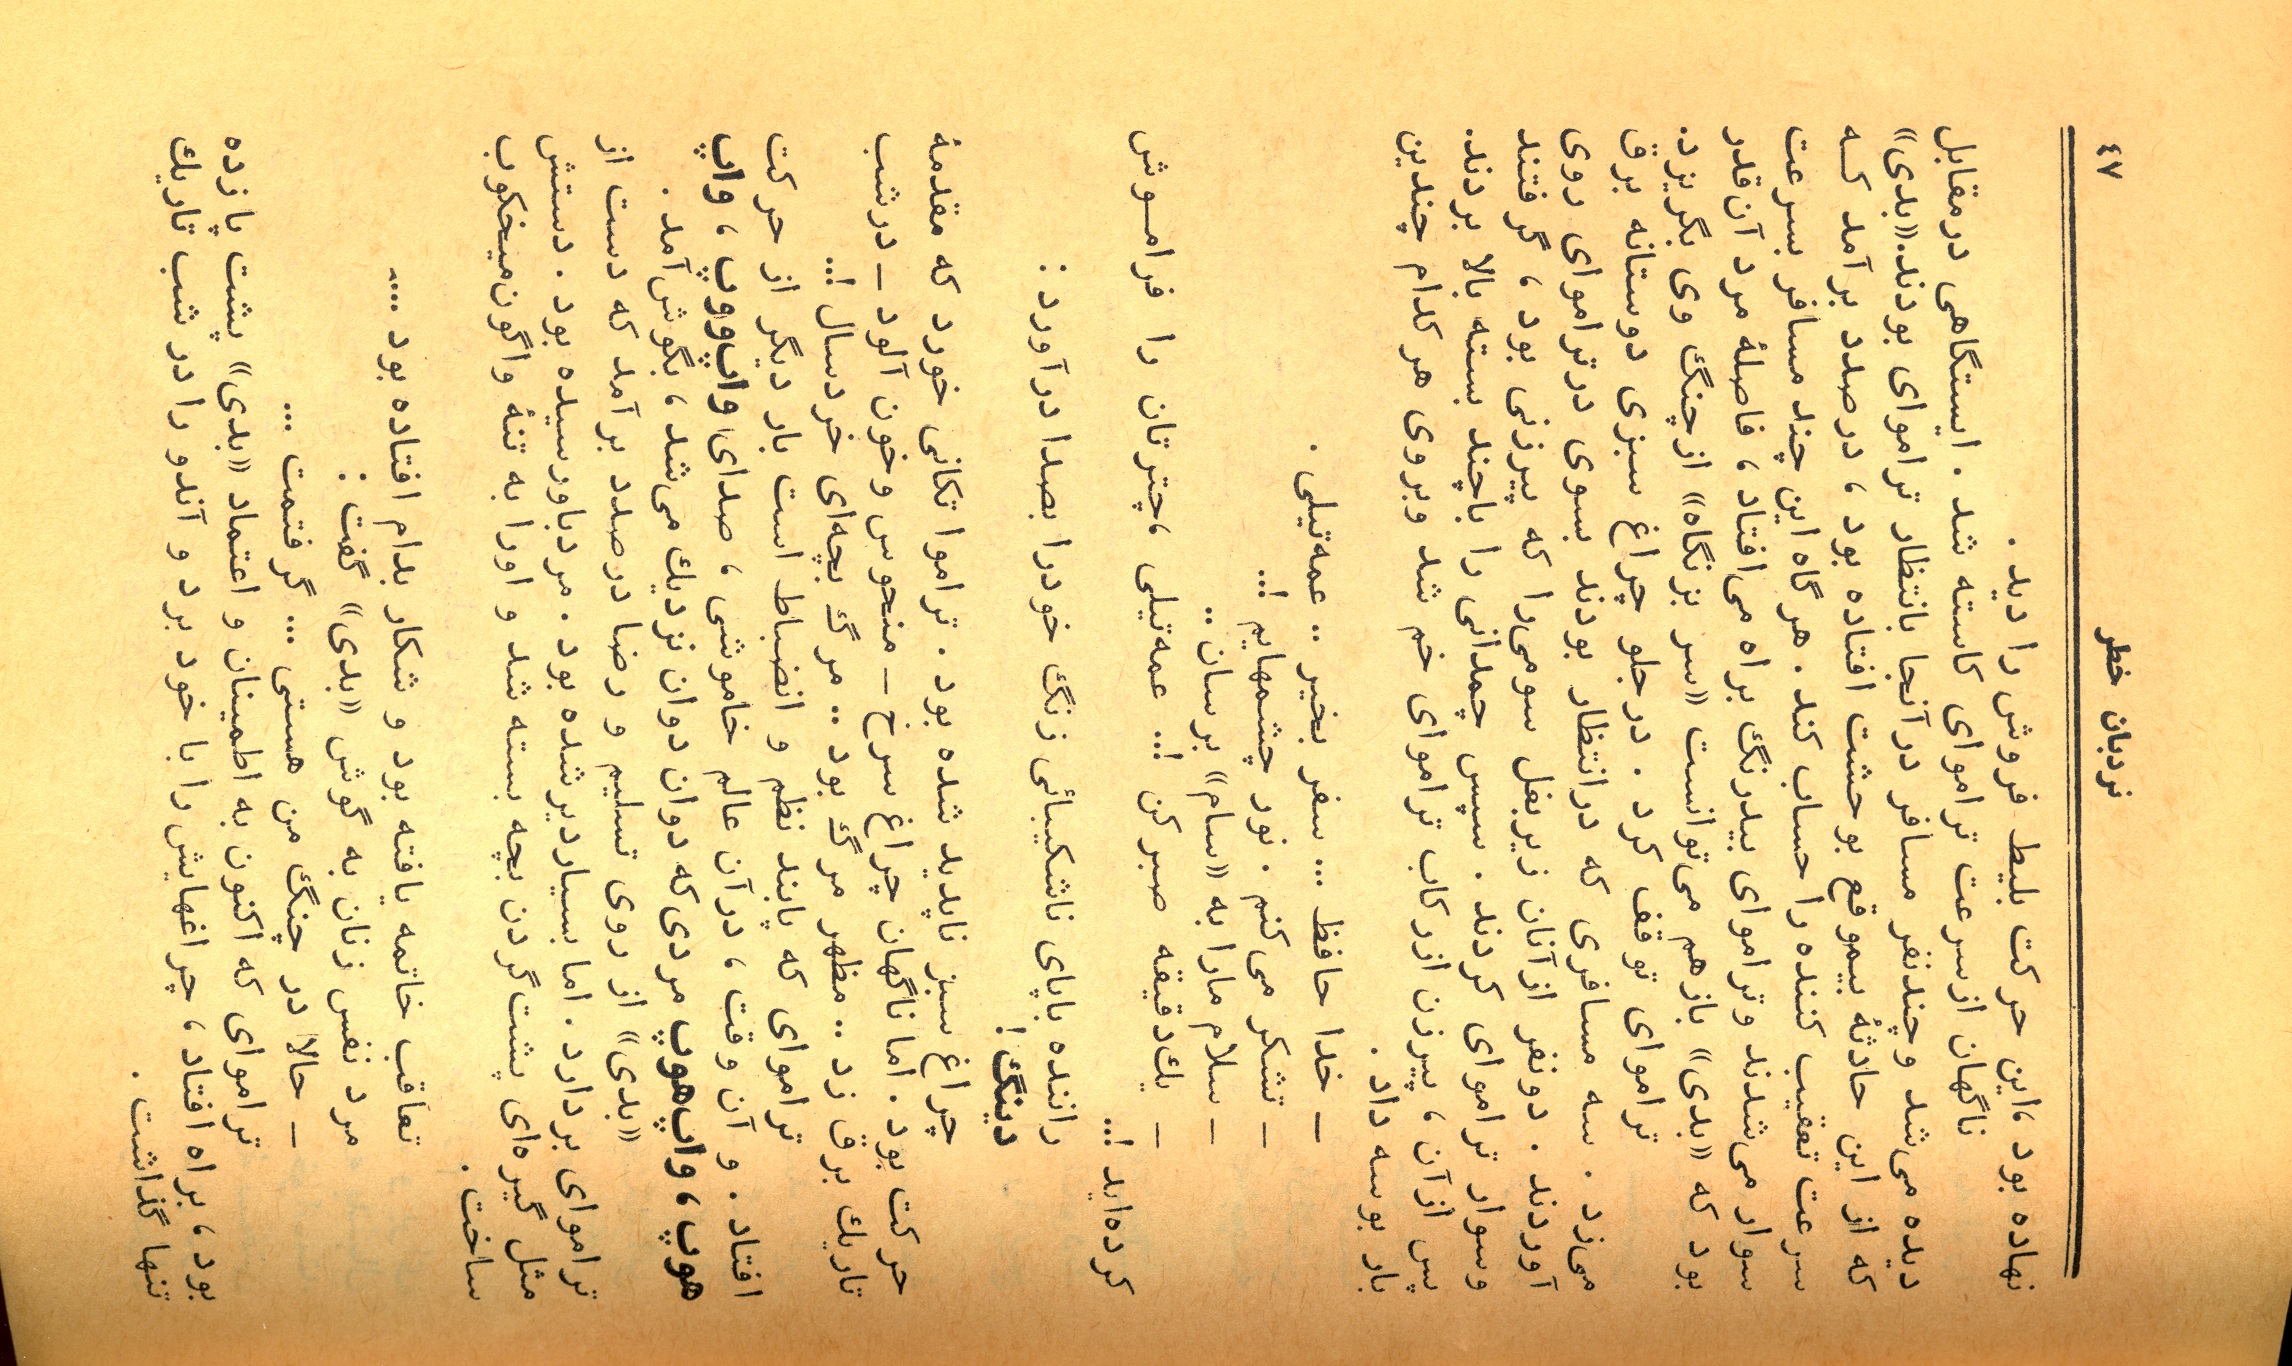 ٤٧
نردبان خطر
نهاده بود ،این حرکت بلیط فروش را دید .
ناگهان ازسرعت تراموای کاسته شد . ایستگاهی درمقابل
دیده می‌شد وچندنفر مسافر درآنجا بانتظار تراموای بودند.«بدی»
که از این حادثهٔ بیموقع بوحشت افتاده بود ، درصدد برآمد کـه
سرعت تعقیب کننده را حساب کند . هرگاه این چند مسافر بسرعت
سوار می‌شدند وتراموای بیدرنگ براه می‌افتاد ، فاصلهٔ مرد آن‌قدر
بود که «بدی» بازهم می‌توانست «سر بزنگاه» ازچنگ وی بگریزد.
تراموای توقف کرد . درجلو چراغ سبزی دوستانه برق
می‌زد . سه مسافری که درانتظار بودند بسوی درتراموای روی
آوردند . دونفر ازآنان زیربغل سومی‌را که پیرزنی بود ، گرفتند
وسوار تراموای کردند . سپس چمدانی را باچند بسته بالا بردند.
پس ازآن ، پیرزن ازرکاب تراموای خم شد وبروی هرکدام چندین
بار بوسه داد .
ـ خدا حافظ ... سفر بخیر .. عمه‌تیلی .
ـ تشکر می‌کنم . نور چشمهایم !..
ـ سلام مارا به «سام» برسان ..
ـ یك‌دقیقه صبرکن !.. عمه‌تیلی ،چترتان را فرامـوش
کرده‌اید !..
راننده باپای ناشکیبائی زنگ خودرا بصدا درآورد :
دینگ !
چراغ سبز ناپدید شده بود . تراموا تکانی خورد که مقدمهٔ
حرکت بود . اما ناگهان چراغ سرخ ـ منحوس وخون آلود ـ درشب
تاریك برق زد .. مظهر مرگ بود .. مرگ بچه‌ای خردسال !..
تراموای که پابند نظم و انضباط است بار دیگر از حرکت
افتاد . و آن وقت ، درآن عالم خاموشی ، صدای واپ‌ووپ ، واپ
هوپ ، واپ‌هوپ مردی‌که دوان دوان نزدیك می‌شد ، بگوش‌آمد .
«بدی» از روی تسلیم و رضا درصدد برآمد که دست از
تراموای بردارد . اما بسیاردیر شده بود . مردباورسیده بود . دستش
مثل گیره‌ای پشت‌گردن بچه بسته شد و اورا به تنهٔ واگون‌میخکوب
ساخت .
تعاقب خاتمه یافته بود و شکار بدام افتاده بود ....
مرد نفس زنان به گوش «بدی» گفت :
ـ حالا در چنگ من هستی ... گرفتمت ...
تراموای که اکنون به اطمینان و اعتماد «بدی» پشت پازده
بود ، براه افتاد ، چراغهایش را با خود برد و آندو را در شب تاریك
تنها گذاشت .